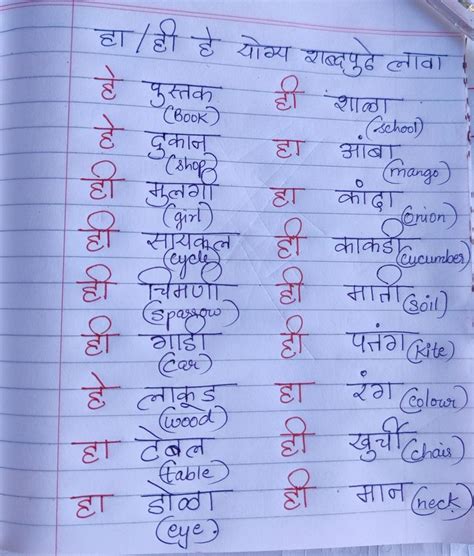 हा / ही हे योग्य शब्दापुढे लावा
हे पुस्तक (Book) ही शाळा (school)
हे दुकान (shop) हा आंबा (mango)
ही मुलगी (girl) हा कांदा (onion)
ही सायकल (cycle) ही काकडी (cucumber)
ही चिमणी (sparrow) ही माती (soil)
ही गाडी (car) ही पतंग (kite)
हे लाकूड (wood) हा रंग (colour)
हा टेबल (table) ही खुर्ची (chair)
हा डोळा (eye) ही मान (neck)